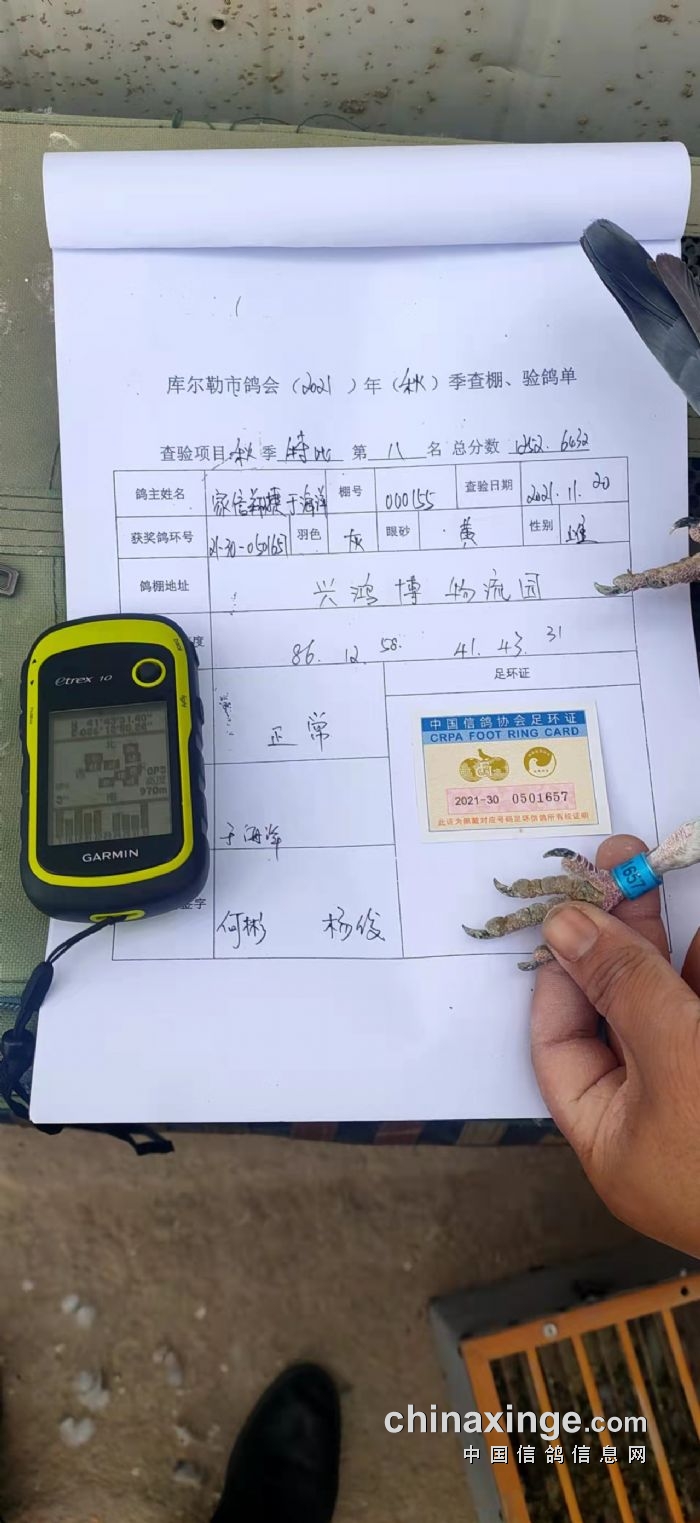 库尔勒市鸽会（2021）年（秋）季查棚、验鸽单
查验项目 秋 季 特比 第 八 名 总分数 1252.6432
鸽主姓名 家信翱捷 于海洋 棚号 000155 查验日期 2021.11.20
获奖鸽环号 21-30-0501657 羽色 灰 眼砂 黄 性别 雄
鸽棚地址 兴鸿博物流园
度 86.12.58. 41.43.31
足环证
正常
中国信鸽协会足环证
CRPA FOOT RING CARD
2021-30 0501657
此证为佩戴对应号码足环信鸽所有权证明
于海洋
签字 何彬 杨俊
etrex 10
GPS
970m
GARMIN
657
chinaxinge.com
中国信鸽信息网